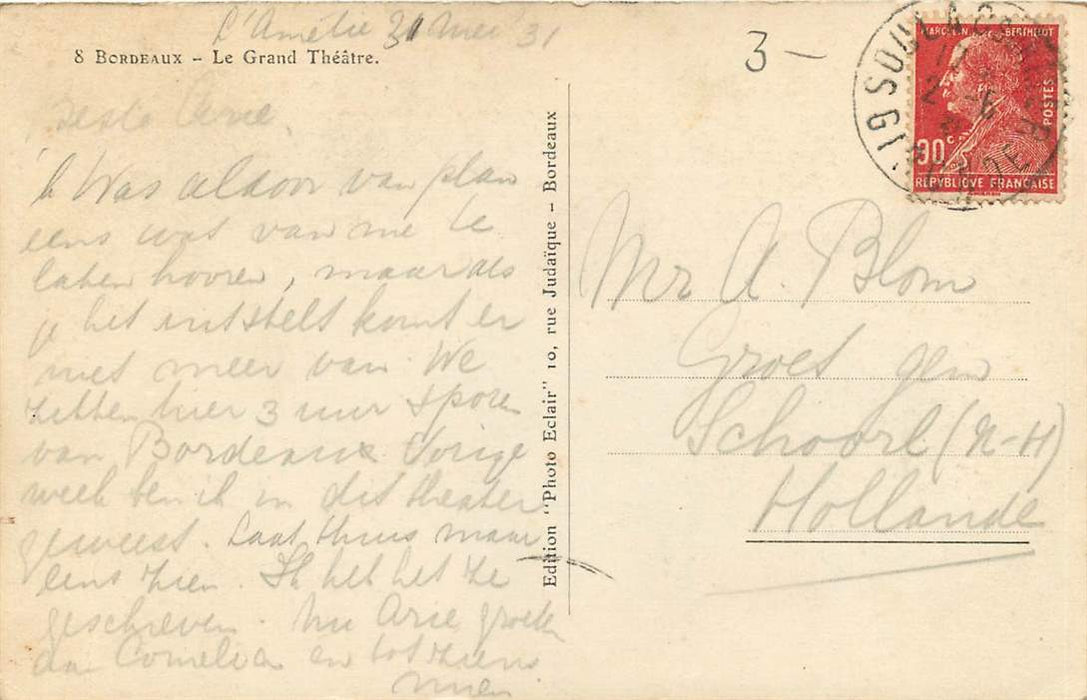 L'Amélie 31 Mei 31
8 BORDEAUX – Le Grand Théâtre.
3 –
Beste Arie,
'k Was aldoor van plan
eens wat van me te
laten hooren, maar als
je het uitstelt komt er
niet meer van. We
zitten hier 3 uur sporen
van Bordeaux. Vorige
week ben ik in dit theater
geweest. Laat thuis maar
eens zien. Ik heb het ze
geschreven. Nu Arie groeten
aan Cornelia en tot ziens
Mien
Edition "Photo Eclair" 10, rue Judaïque – Bordeaux
MARCELIN BERTHELOT
POSTES
90 c
REPVBLIQVE FRANÇAISE
SOULAC
Mr A. Blom
Groet gem
Schoorl (N-H)
Hollande